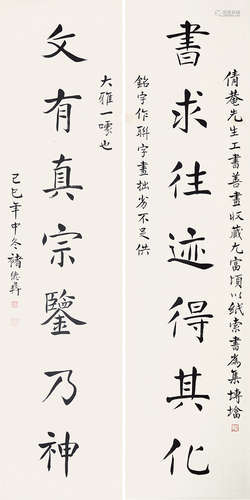 倩菴先生工書善畫收藏尤富頃以紙索書為集塼塔
書求往迹得其化
銘字作聯字畫拙劣不足供
大雅一噱也
文有真宗鑒乃神
己巳年中冬褚德彝